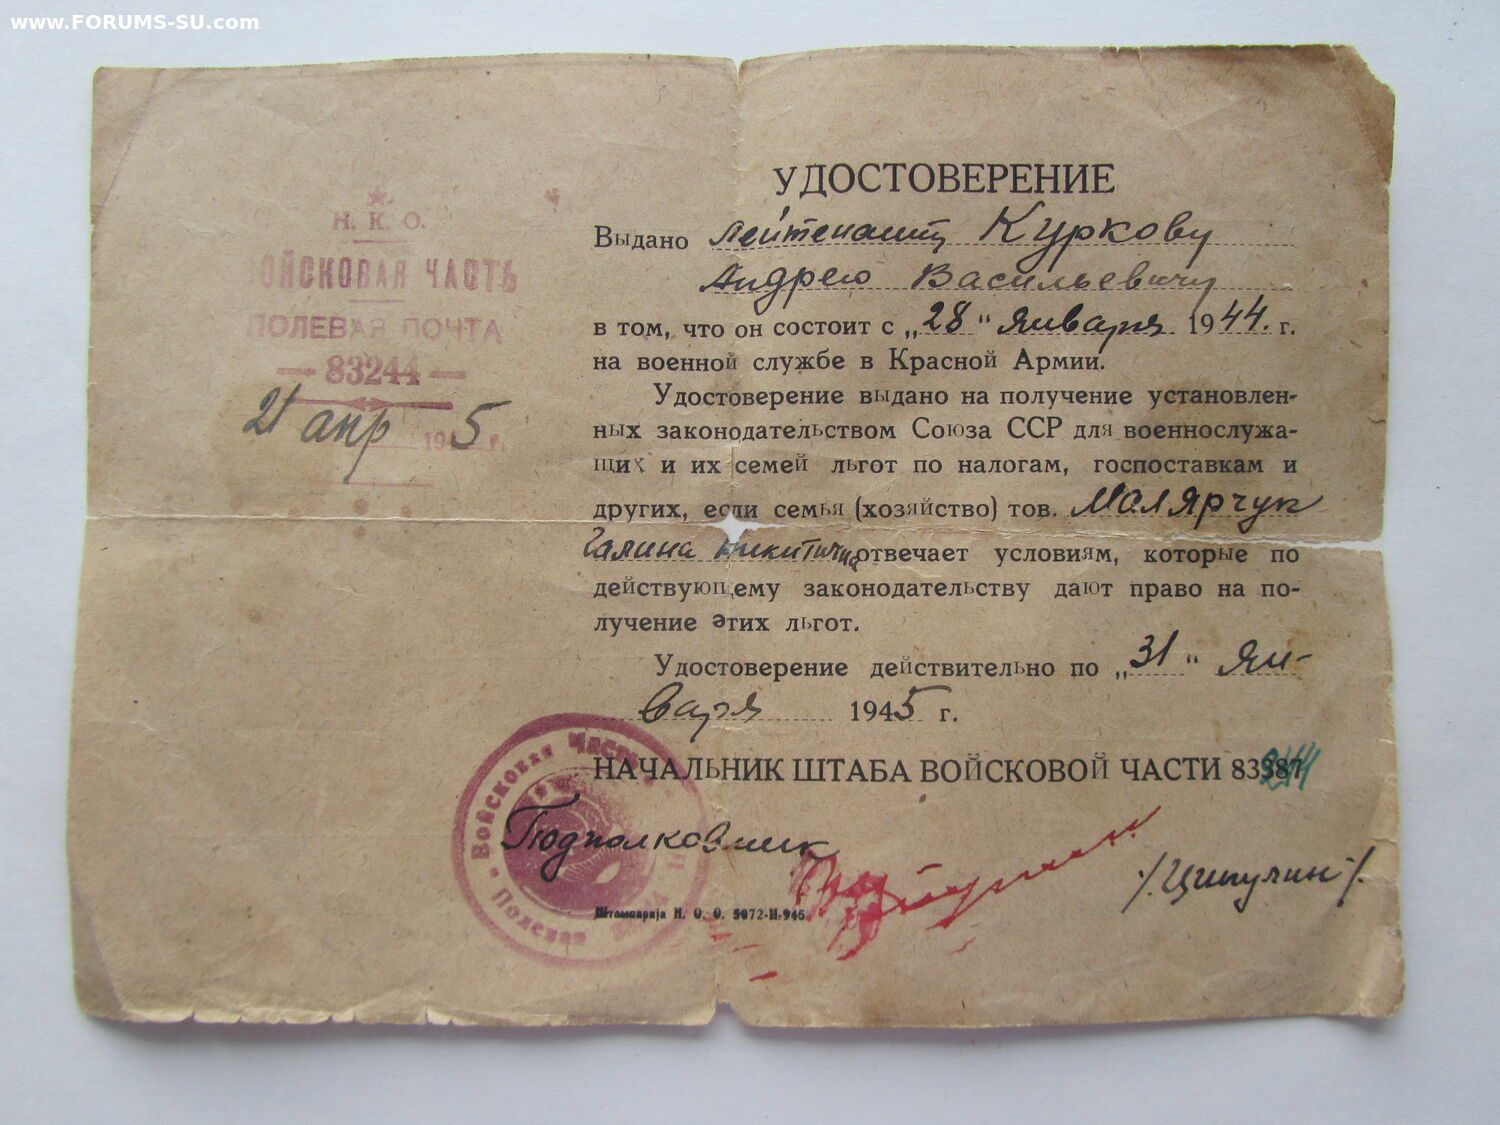 www.FORUMS-SU.com
Н. К. О.
ВОЙСКОВАЯ ЧАСТЬ
ПОЛЕВАЯ ПОЧТА
— 83244 —
21 апр 1945 г.
УДОСТОВЕРЕНИЕ
Выдано лейтенанту Куркову
Андрею Васильевичу
в том, что он состоит с „28“ Января 1944. г.
на военной службе в Красной Армии.
Удостоверение выдано на получение установлен-
ных законодательством Союза ССР для военнослужа-
щих и их семей льгот по налогам, госпоставкам и
других, если семья (хозяйство) тов. Малярчук
Галина Никитична отвечает условиям, которые по
действующему законодательству дают право на по-
лучение этих льгот.
Удостоверение действительно по „31“ Ян-
варя 1945 г.
НАЧАЛЬНИК ШТАБА ВОЙСКОВОЙ ЧАСТИ 83
Войсковая Часть
Полевая
Подполковник
/Ципулин/.
Штампарија Н. О. О. 5072-II-945